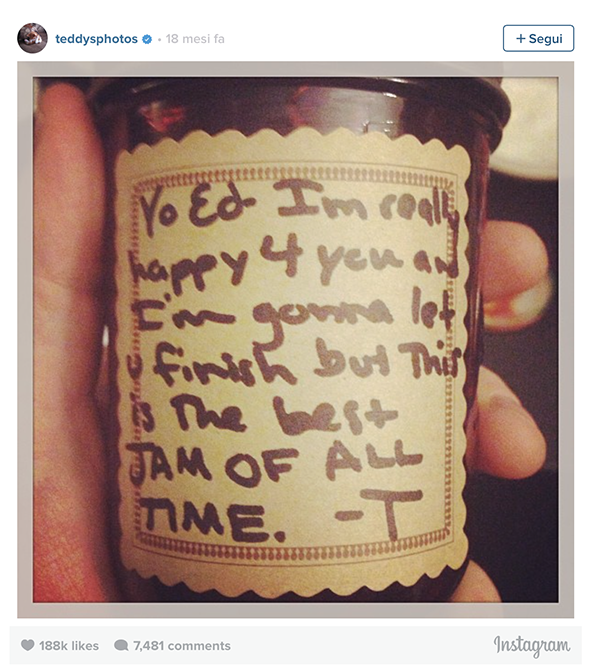 teddysphotos • 18 mesi fa
+ Segui
Yo Ed Im really
happy 4 you and
I'm gonna let
u finish but This
is The best
JAM OF ALL
TIME. -T
188k likes 7,481 comments
Instagram